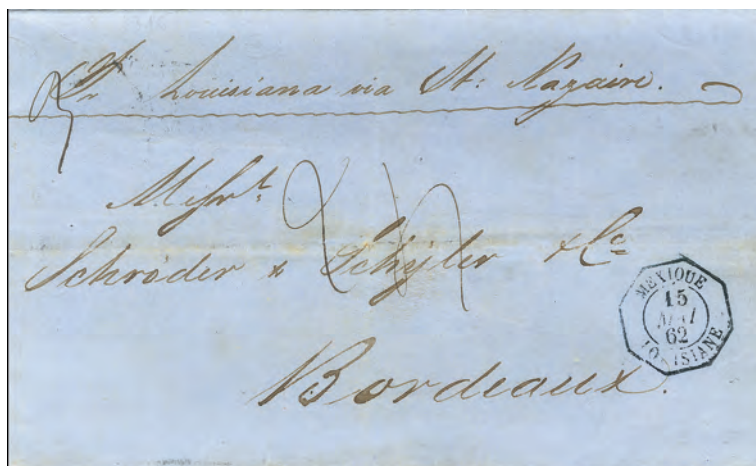 Pr Louisiana via St: Nazaire.
Messrs
Schröder & Schÿler & Co
Bordeaux.
MEXIQUE
15
MAI
62
LOUISIANE